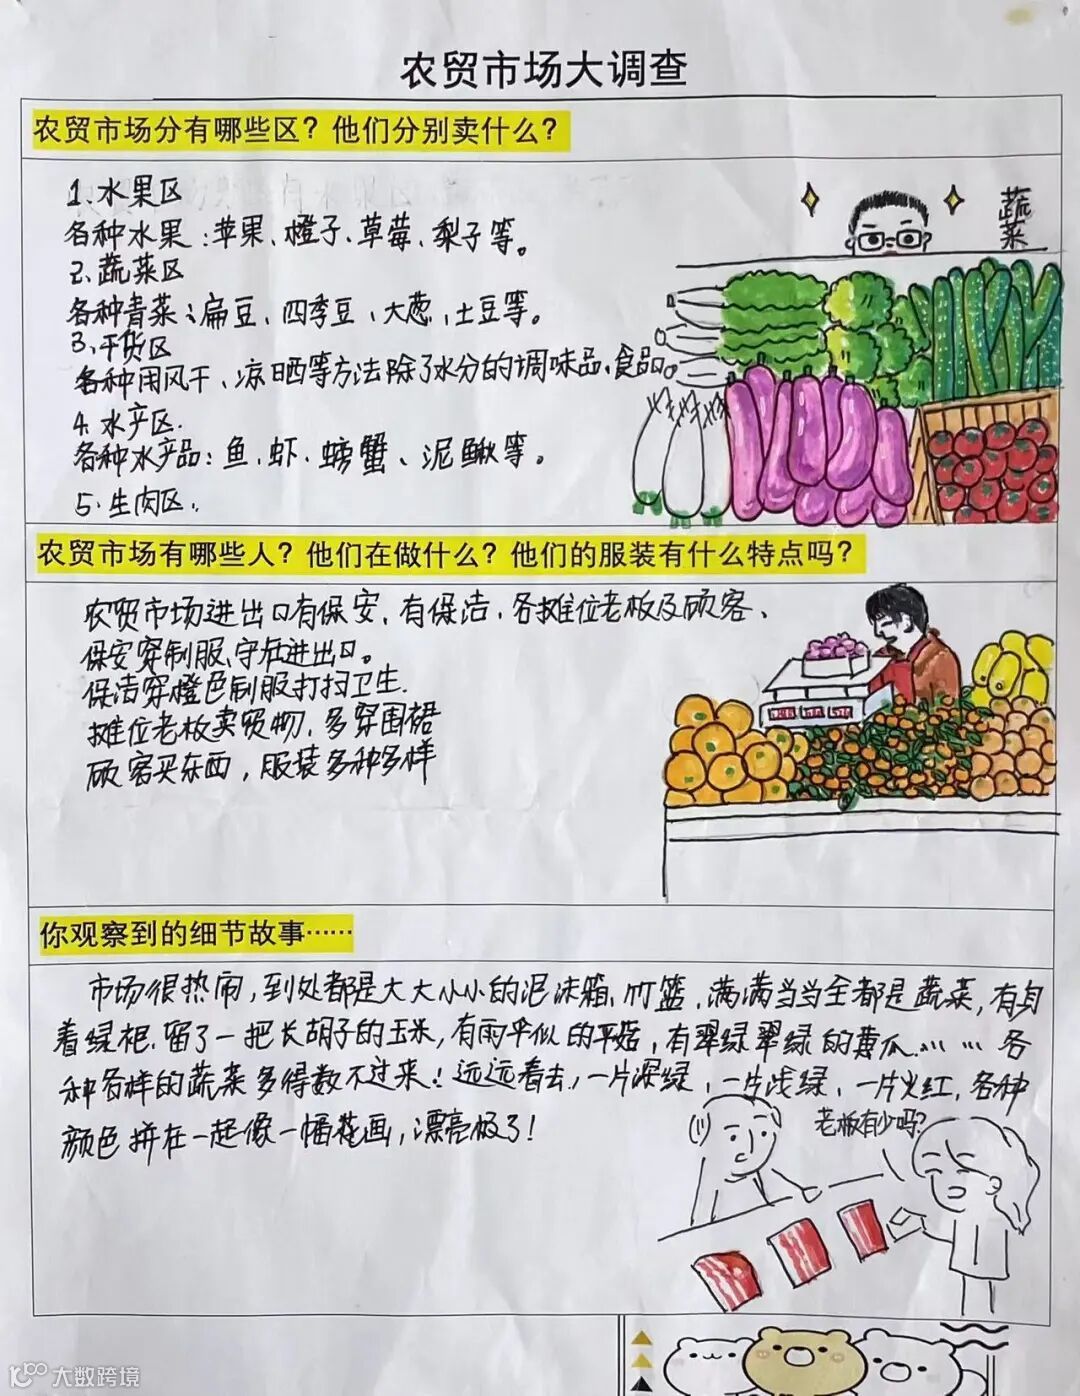 农贸市场大调查
农贸市场分有哪些区？他们分别卖什么？
1.水果区
各种水果：苹果、橙子、草莓、梨子等。
2.蔬菜区
各种青菜：扁豆、四季豆、大葱、土豆等。
3.干货区
各种用风干、凉晒等方法除了水分的调味品、食品。
4.水产区.
各种水产品：鱼、虾、螃蟹、泥鳅等。
5.生肉区.
蔬菜
农贸市场有哪些人？他们在做什么？他们的服装有什么特点吗？
农贸市场进出口有保安，有保洁，各摊位老板及顾客、
保安穿制服，守在进出口。
保洁穿橙色制服打扫卫生.
摊位老板卖货物，多穿围裙
顾客买东西，服装多种多样
你观察到的细节故事……
市场很热闹，到处都是大大小小的泡沫箱、竹篮，满满当当全都是蔬菜，有身
着绿袍.留了一把长胡子的玉米，有雨伞似的平菇，有翠绿翠绿的黄瓜……各
种各样的蔬菜多得数不过来！远远看去，一片深绿，一片浅绿，一片火红，各种
颜色拼在一起像一幅花画，漂亮极了！
老板有少吗？
大数跨境